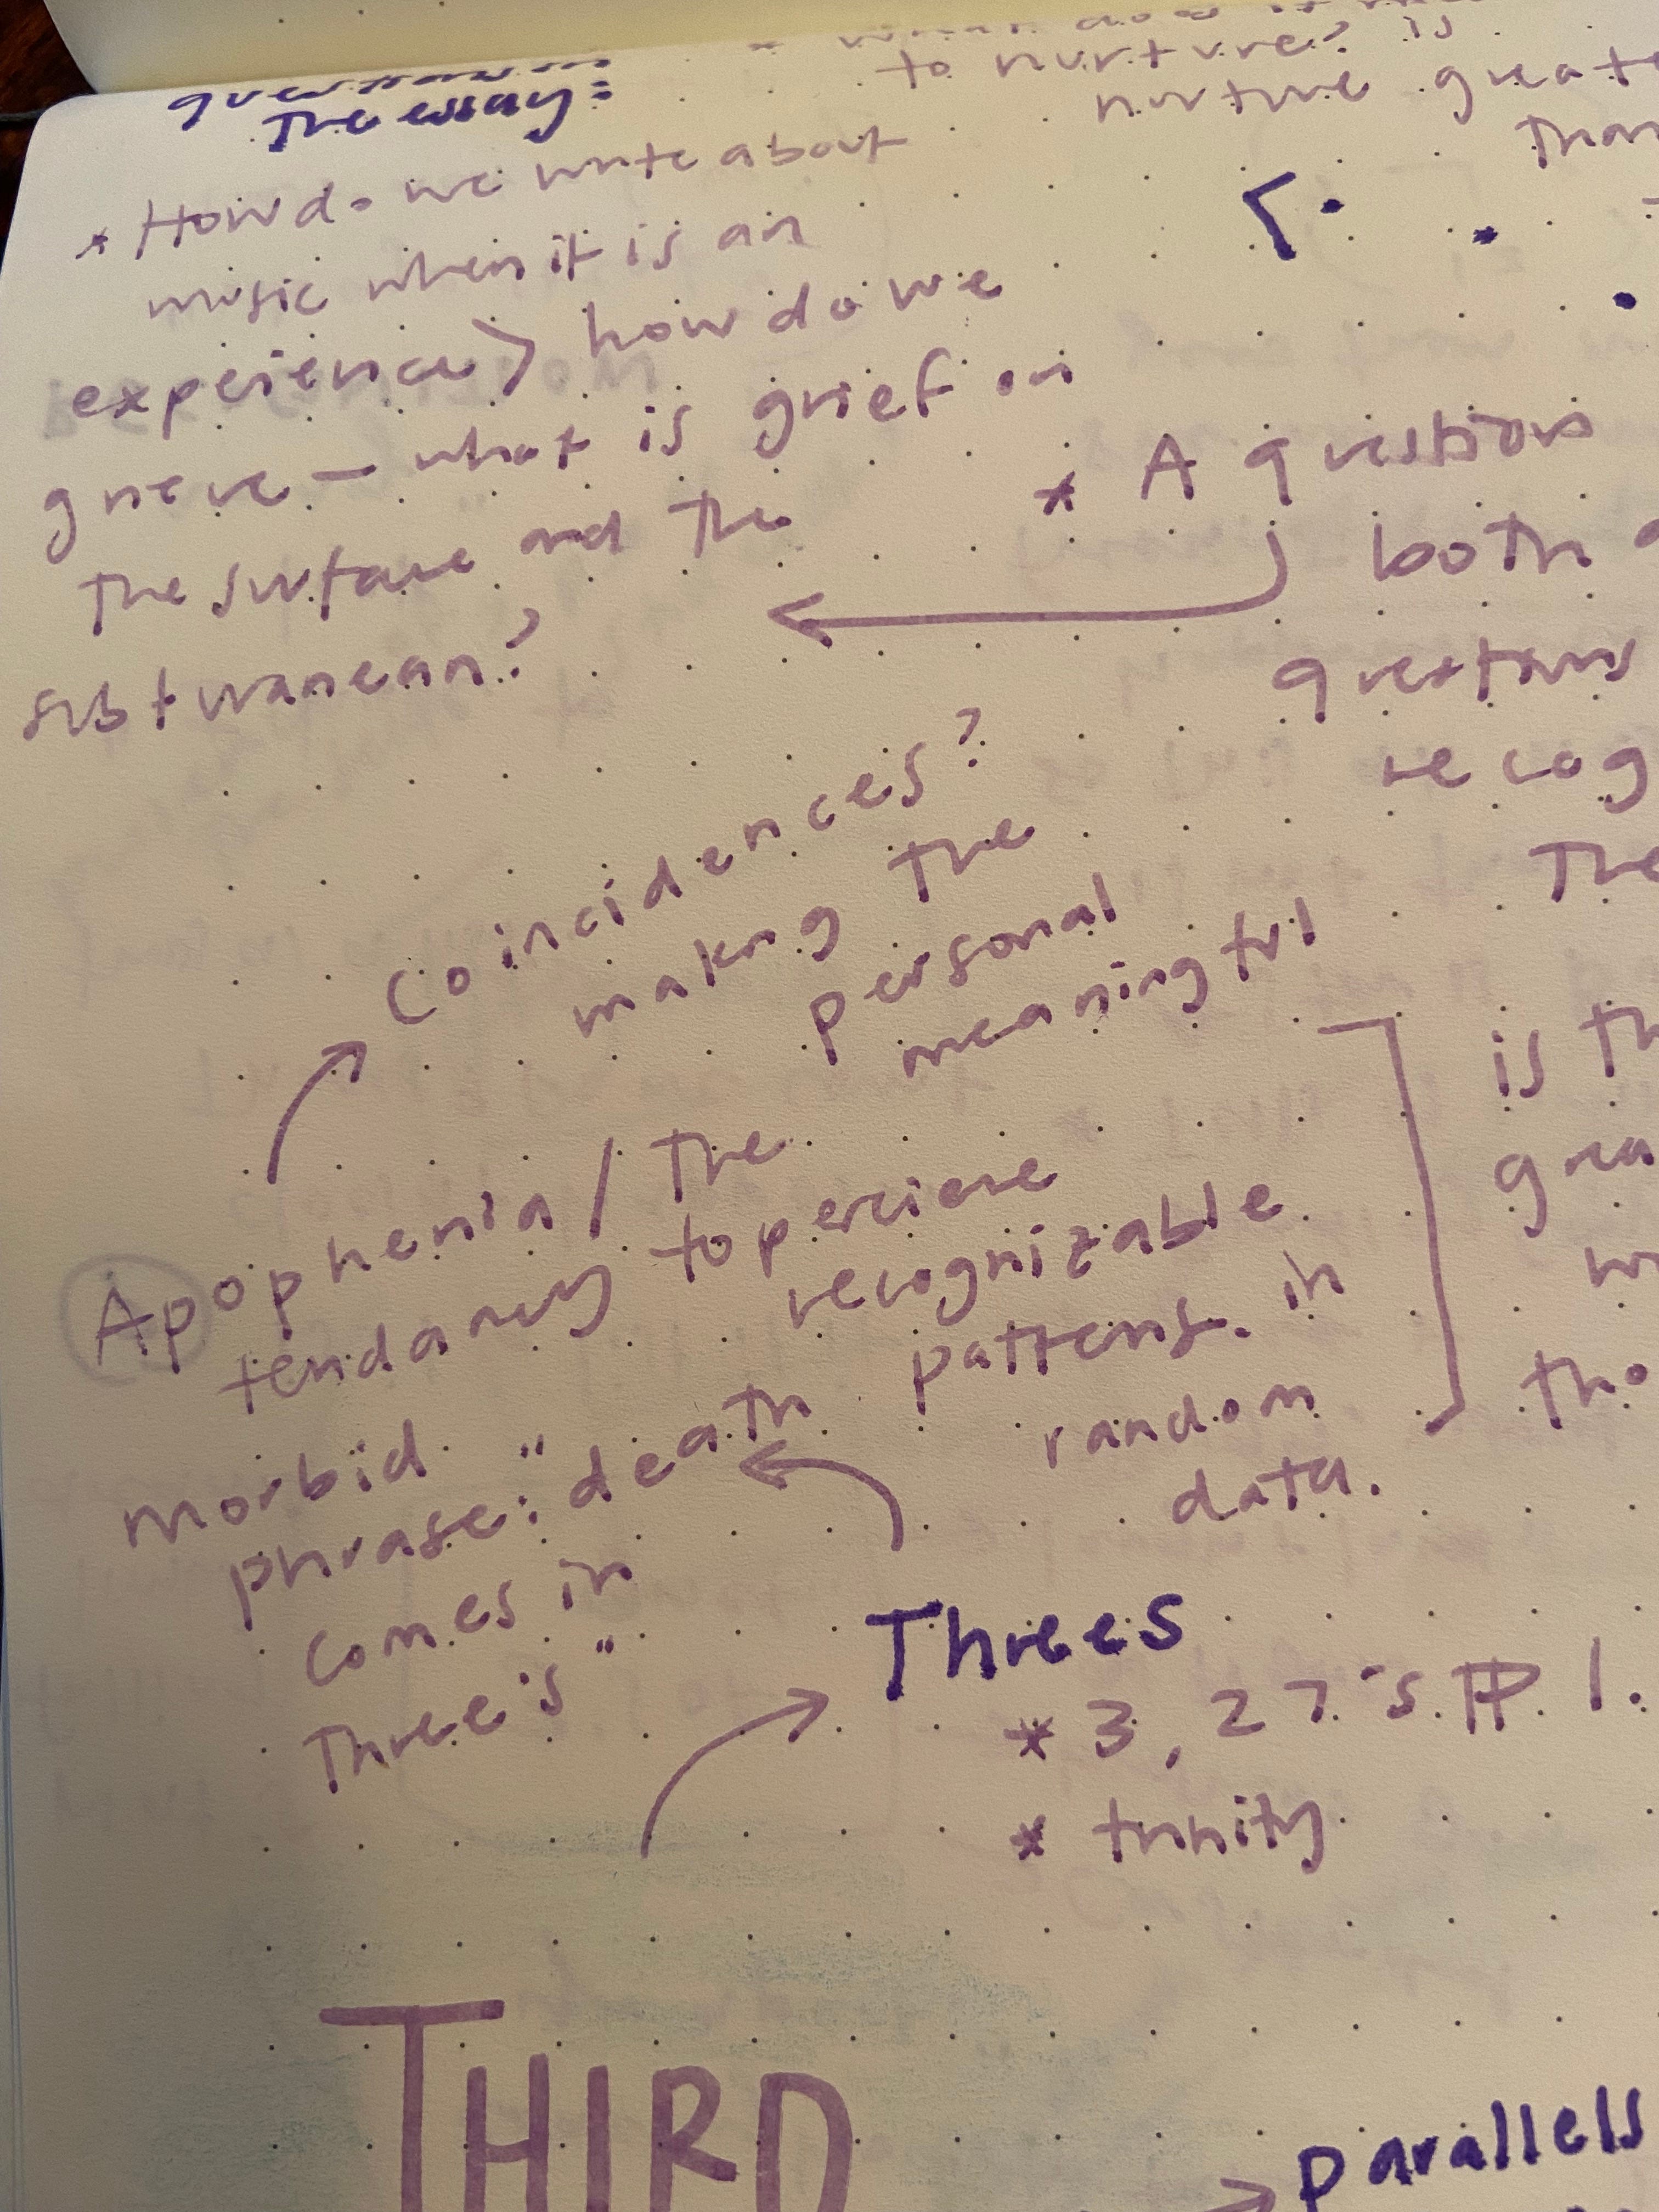 questions in
the essay:
* How do we write about
music when it is an
experience? how do we
grieve - what is grief on
the surface and the
subteranean?
to nurture? is
nurture greate
than
* A question
both a
questions
recog
The
Coincidences?
making the
personal
meaningful
Apophenia / the
tendancy to percieve
recognizable
patterns. in
random
data.
is th
grea
tho
morbid
phrase: "death
comes in
Three's"
Threes
* 3, 27's
* trinity
THIRD
parallels